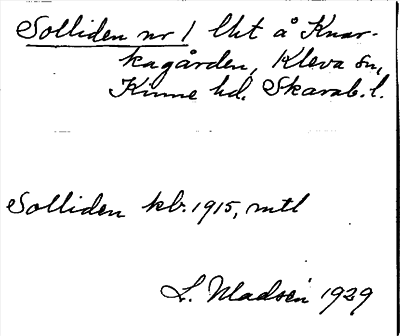 Solliden nr 1 lht å Knar-
kagården, Kleva sn,
Kinne hd. Skarab. l.
Solliden kb. 1915, mtl
L. Madsén 1929